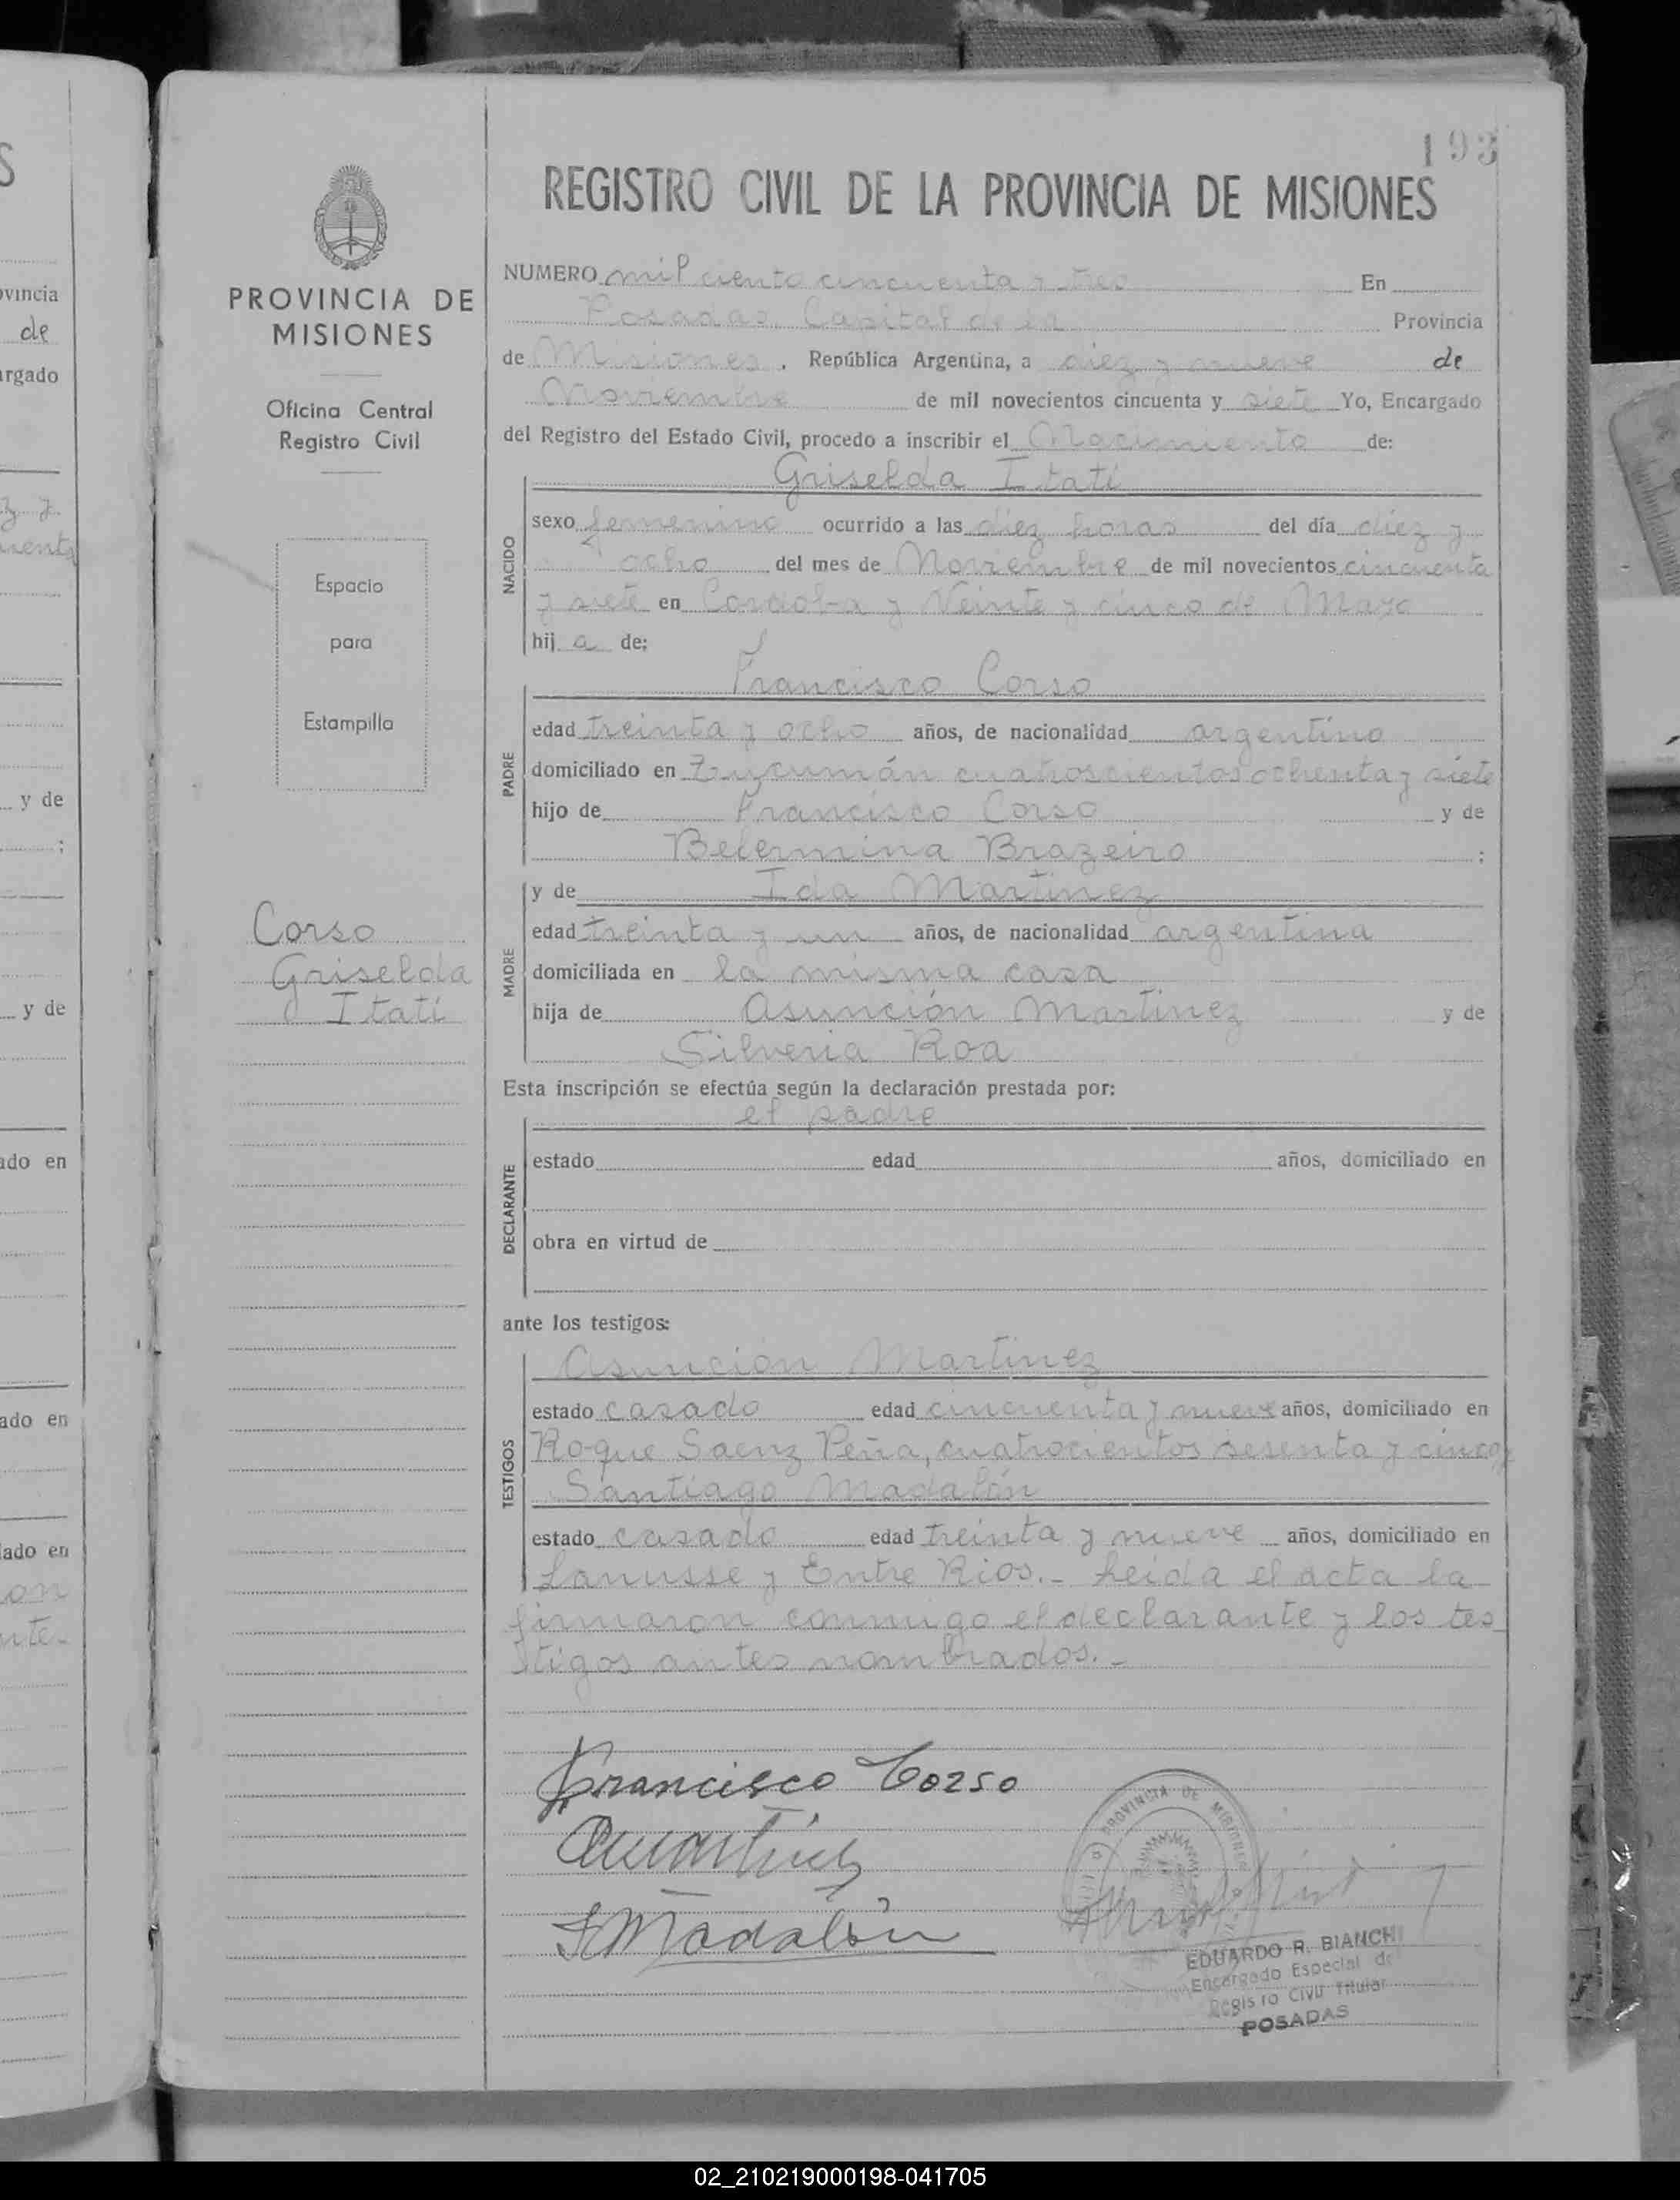 193
REGISTRO CIVIL DE LA PROVINCIA DE MISIONES
PROVINCIA DE
MISIONES
Oficina Central
Registro Civil
Espacio
para
Estampilla
Corso
Griselda
Itatí
NUMERO mil ciento cincuenta y tres En
Posadas, Capital de la Provincia
de Misiones, República Argentina, a diez y nueve de
Noviembre de mil novecientos cincuenta y siete Yo, Encargado
del Registro del Estado Civil, procedo a inscribir el Nacimiento de:
Griselda Itatí
NACIDO
sexo femenino ocurrido a las diez horas del día diez y
ocho del mes de Noviembre de mil novecientos cincuenta
y siete en Cordoba y Veinte y cinco de Mayo
hij a de:
Francisco Corso
PADRE
edad treinta y ocho años, de nacionalidad argentino
domiciliado en Tucumán cuatroscientos ochenta y siete
hijo de Francisco Corso y de
Belermina Brazeiro ;
MADRE
y de Ida Martinez
edad treinta y un años, de nacionalidad argentina
domiciliada en la misma casa
hija de Asunción Martinez y de
Silveria Roa
Esta inscripción se efectúa según la declaración prestada por:
el padre
DECLARANTE
estado edad años, domiciliado en
obra en virtud de
ante los testigos:
Asuncion Martinez
TESTIGOS
estado casado edad cincuenta y nueve años, domiciliado en
Roque Saenz Peña, cuatrocientos sesenta y cinco y
Santiago Madalón
estado casado edad treinta y nueve años, domiciliado en
Lanusse y Entre Rios.- Leida el acta la
firmaron conmigo el declarante y los tes
tigos antes nombrados.-
Francisco Corso
AMartinez
S Madalón
PROVINCIA DE MISIONES
EDUARDO R. BIANCHI
Encargado Especial de
Registro Civil Titular
POSADAS
02_210219000198-041705